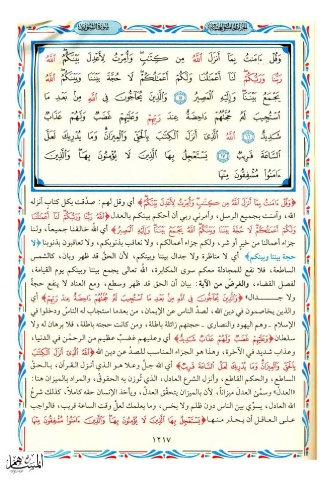 سورة الشورى
وَقُلْ ءَامَنتُ بِمَآ أَنزَلَ ٱللَّهُ مِن كِتَٰبٍ وَأُمِرْتُ لِأَعْدِلَ بَيْنَكُمُ ٱللَّهُ
رَبُّنَا وَرَبُّكُمْ لَنَآ أَعْمَٰلُنَا وَلَكُمْ أَعْمَٰلُكُمْ لَا حُجَّةَ بَيْنَنَا وَبَيْنَكُمُ ٱللَّهُ
يَجْمَعُ بَيْنَنَا وَإِلَيْهِ ٱلْمَصِيرُ ١٥ وَٱلَّذِينَ يُحَآجُّونَ فِى ٱللَّهِ مِنۢ بَعْدِ مَا
ٱسْتُجِيبَ لَهُۥ حُجَّتُهُمْ دَاحِضَةٌ عِندَ رَبِّهِمْ وَعَلَيْهِمْ غَضَبٌ وَلَهُمْ عَذَابٌ
شَدِيدٌ ١٦ ٱللَّهُ ٱلَّذِىٓ أَنزَلَ ٱلْكِتَٰبَ بِٱلْحَقِّ وَٱلْمِيزَانَ وَمَا يُدْرِيكَ لَعَلَّ
ٱلسَّاعَةَ قَرِيبٌ ١٧ يَسْتَعْجِلُ بِهَا ٱلَّذِينَ لَا يُؤْمِنُونَ بِهَا وَٱلَّذِينَ
ءَامَنُوا۟ مُشْفِقُونَ مِنْهَا
﴿وَقُلْ ءَامَنتُ بِمَآ أَنزَلَ ٱللَّهُ مِن كِتَٰبٍ وَأُمِرْتُ لِأَعْدِلَ بَيْنَكُمُ﴾ أي وقل لهم: صدّقت بكل كتاب أنزله
الله، وآمنت بجميع الرسل، وأمرني ربي أن أحكم بينكم بالعدل ﴿ٱللَّهُ رَبُّنَا وَرَبُّكُمْ لَنَآ أَعْمَٰلُنَا
وَلَكُمْ أَعْمَٰلُكُمْ لَا حُجَّةَ بَيْنَنَا وَبَيْنَكُمُ ٱللَّهُ يَجْمَعُ بَيْنَنَا وَإِلَيْهِ ٱلْمَصِيرُ﴾ أي الله خالقنا جميعاً، ولنا
جزاء أعمالنا من خير أو شر، ولكم جزاء أعمالكم، ولا نعاقب بذنوبكم، ولا تعاقبون بذنوبنا ﴿لا
حجة بيننا وبينكم﴾ أي لا مناظرة ولا جدال بيننا وبينكم، لأن الحق قد ظهر وبان، كالشمس
الساطعة، فلا نفع للمجادلة معكم سوى المكابرة، الله تعالى يجمع بيننا وبينكم يوم القيامة،
لفصل القضاء، والغرض من الآية: بيان أن الحق قد ظهر وسطع، ومع العناد لا ينفع حجة
ولا جـدال ﴿وَٱلَّذِينَ يُحَآجُّونَ فِى ٱللَّهِ مِنۢ بَعْدِ مَا ٱسْتُجِيبَ لَهُۥ حُجَّتُهُمْ دَاحِضَةٌ عِندَ رَبِّهِمْ﴾ أي
والذين يخاصمون في دين الله، لصدّ الناس عن الإيمان، من بعدما استجاب له الناس ودخلوا في
الإسلام ـ وهم اليهود والنصارى ـ حجتهم زائلة باطلة، ومن كانت حجته باطلة، فلا برهان له ولا
سلطان ﴿وَعَلَيْهِمْ غَضَبٌ وَلَهُمْ عَذَابٌ شَدِيدٌ﴾ أي وعليهم غضبٌ عظيم من الرحمن في الدنيا،
وعذاب شديد في الآخرة، وهذا هو الجزاء المناسب للصدّ عن دين الله ﴿ٱللَّهُ ٱلَّذِىٓ أَنزَلَ ٱلْكِتَٰبَ
بِٱلْحَقِّ وَٱلْمِيزَانَ وَمَا يُدْرِيكَ لَعَلَّ ٱلسَّاعَةَ قَرِيبٌ﴾ أي الله جلّ وعلا هو الذي أنزل القرآن، بالحقّ
الساطع، والحكم القاطع، وأنزل الشرع العادل، الذي تُوزن به الحقوق، والمراد بالميزان هنا:
«العدل» وسمّى العدل ميزاناً، لأن بالميزان يتحقق العدل، ويأخذ الإنسان حقه كاملاً، كذلك شرعُ
الله العادل، يسوّي بين الناس دون ظلم ولا بخس، وما يعلمك لعلّ وقت الساعة قريب، فالواجب
على العاقل أن يحذر منها ﴿يَسْتَعْجِلُ بِهَا ٱلَّذِينَ لَا يُؤْمِنُونَ بِهَا وَٱلَّذِينَ ءَامَنُوا۟ مُشْفِقُونَ مِنْهَا
١٢١٧